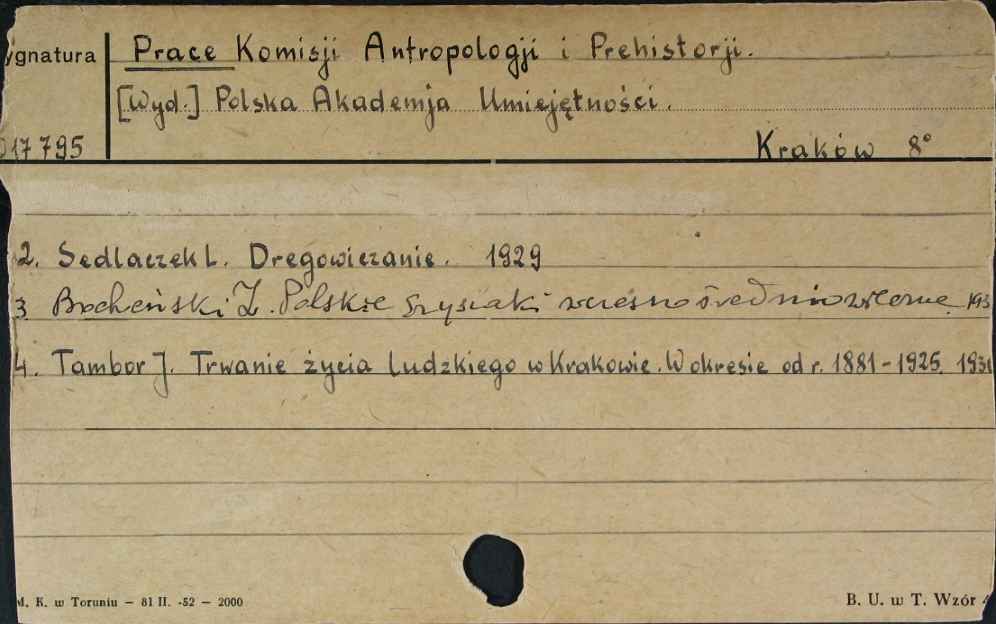 ygnatura Prace Komisji Antropologji i Prehistorji.
[Wyd.] Polska Akademja Umiejętności.
017795 Kraków 8°
2. Sedlaczek L. Dregowiczanie. 1929
3. Bocheński Z. Polskie wczesnośredniowieczne 193
4. Tambor J. Trwanie życia ludzkiego w Krakowie. W okresie od r. 1881-1925. 1930
M. K. w Toruniu — 81 II. -52 — 2000 B. U. w T. Wzór 4